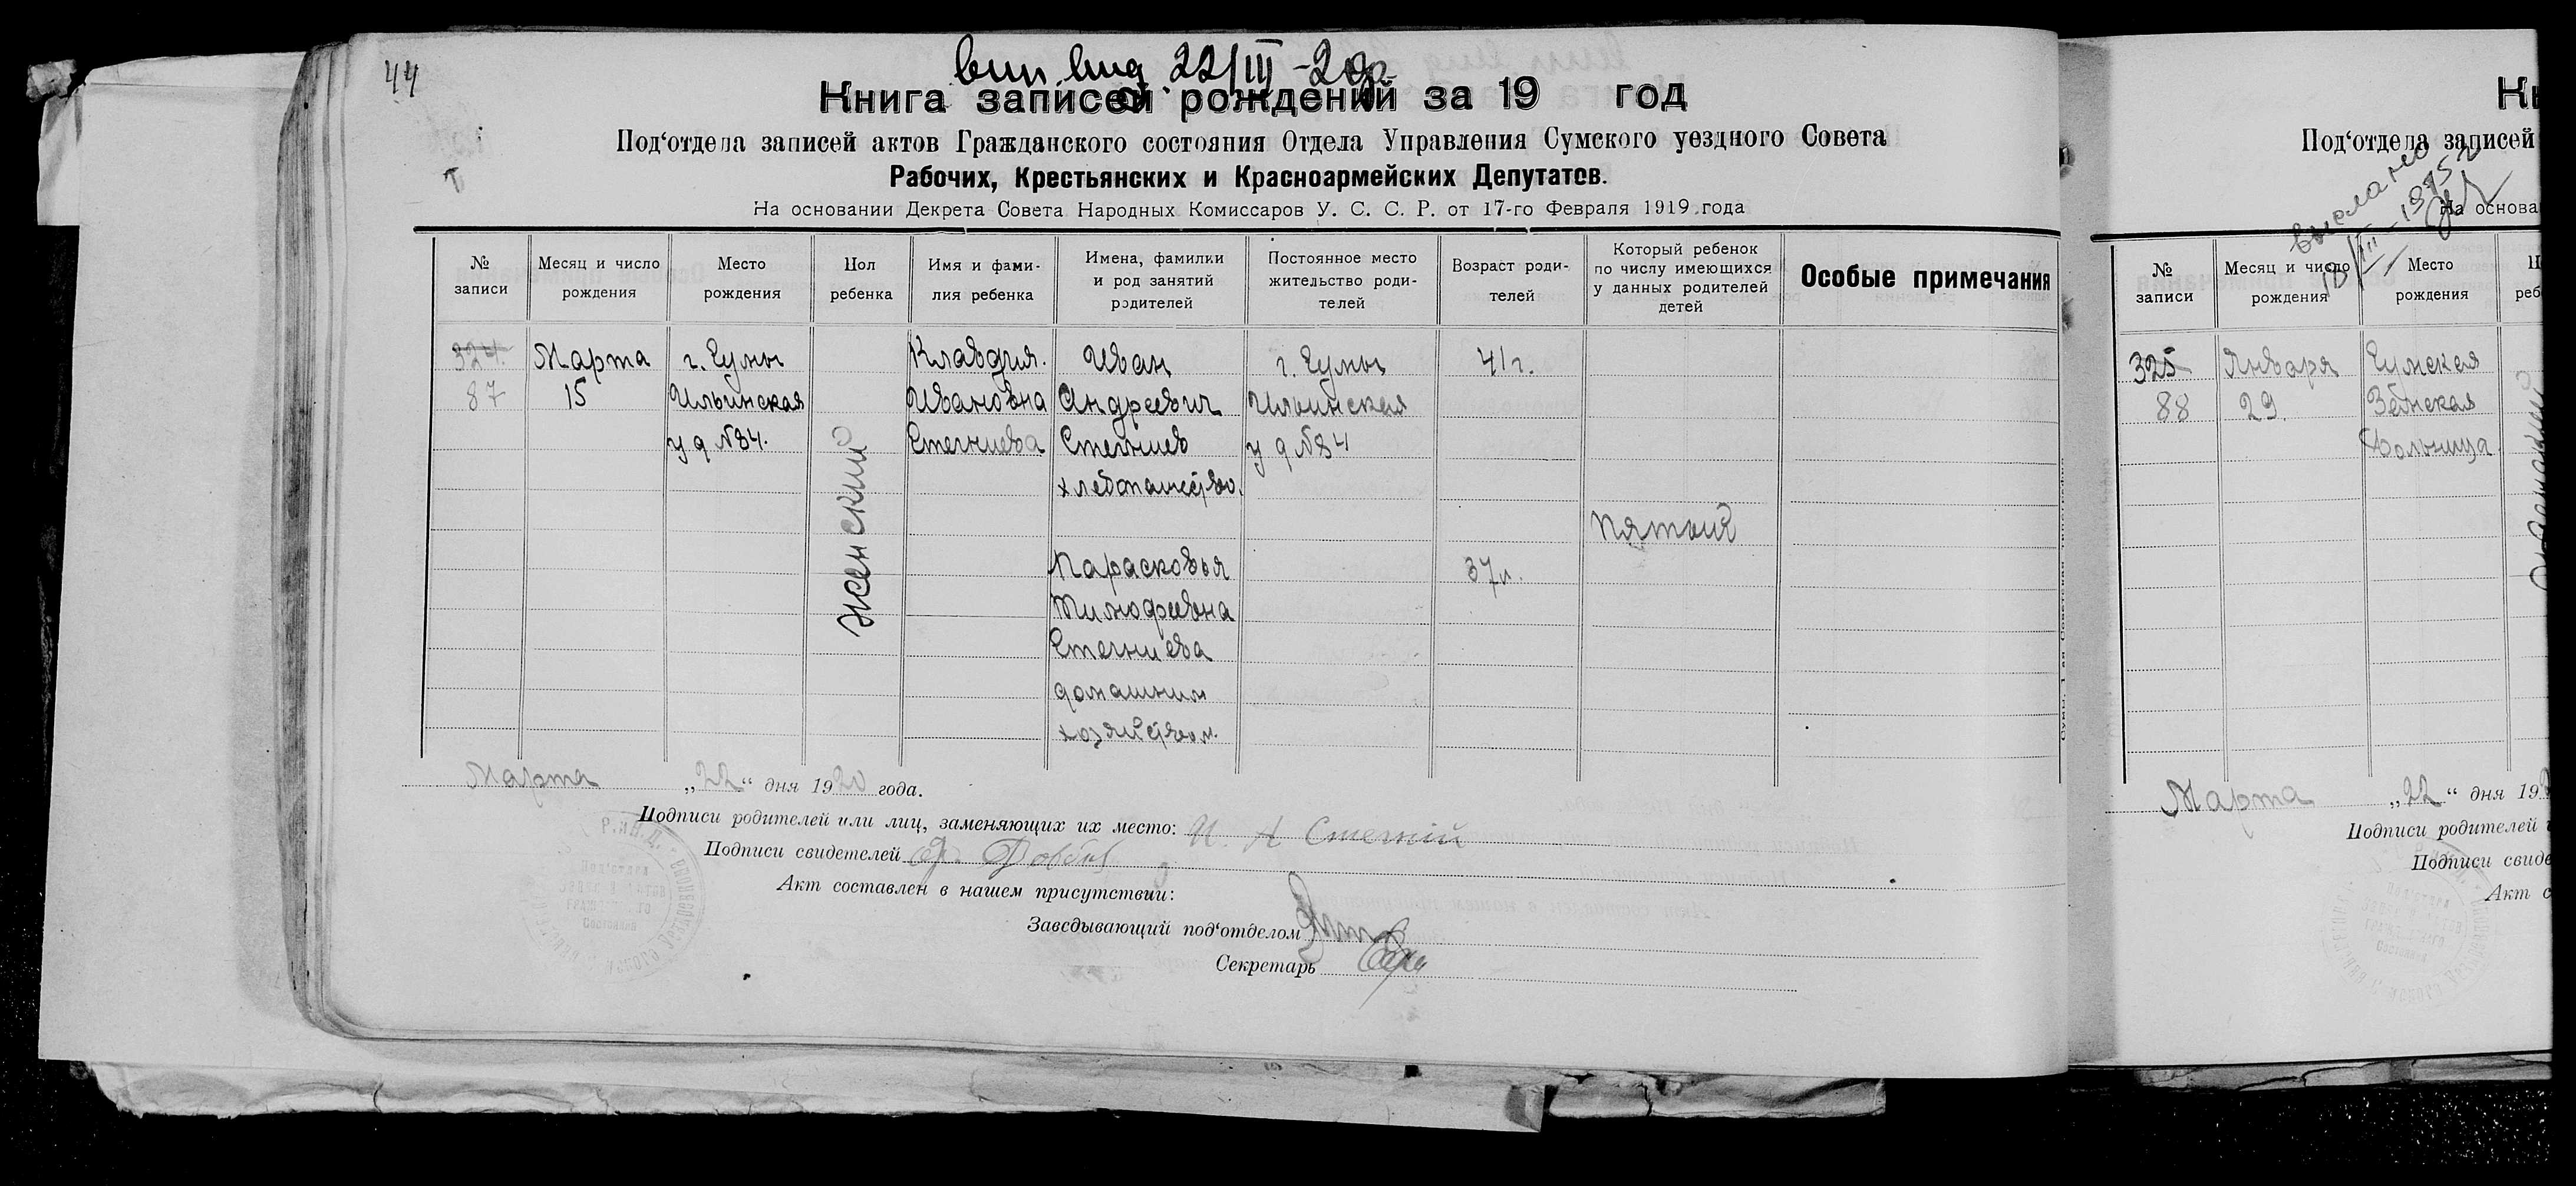 44
22/III - 20 р.
Книга записей рождений за 19 год
Под‘отдела записей актов Гражданского состояния Отдела Управления Сумского уездного Совета
Рабочих, Крестьянских и Красноармейских Депутатов.
На основании Декрета Совета Народных Комиссаров У. С. С. Р. от 17-го Февраля 1919 года
№ записи
Месяц и число рождения
Место рождения
Пол ребенка
Имя и фами-
лия ребенка
Имена, фамилки
и род занятий
родителей
Постоянное место
жительство роди-
телей
Возраст роди-
телей
Который ребенок
по числу имеющихся
у данных родителей
детей
Особые примечания
324.
87
Марта
15
г. Сумы
Ильинская
у д №84.
женский
Клавдия.
Ивановна
Стегниева
Иван
Андреевич
Стегниев
хлебопашество.
Парасковья
Тимофеевна
Стегниева
домашним
хозяйством.
г. Сумы
Ильинская
у д №84
41 г.
37 л.
пятый
Марта „22“ дня 1920 года.
Подписи родителей или лиц, заменяющих их место: И. А Стегній
Подписи свидетелей
Акт составлен в нашем присутствии:
Заведывающий под‘отделом
Секретарь
Кн
Под‘отдела записей
выслано
На основа
№ записи
Месяц и число рождения
Место рождения
П
реб
325
88
Января
29.
Сумская
Земская
больница
Марта „22“ дня 192
Подписи родителей
Подписи свиде
Акт с